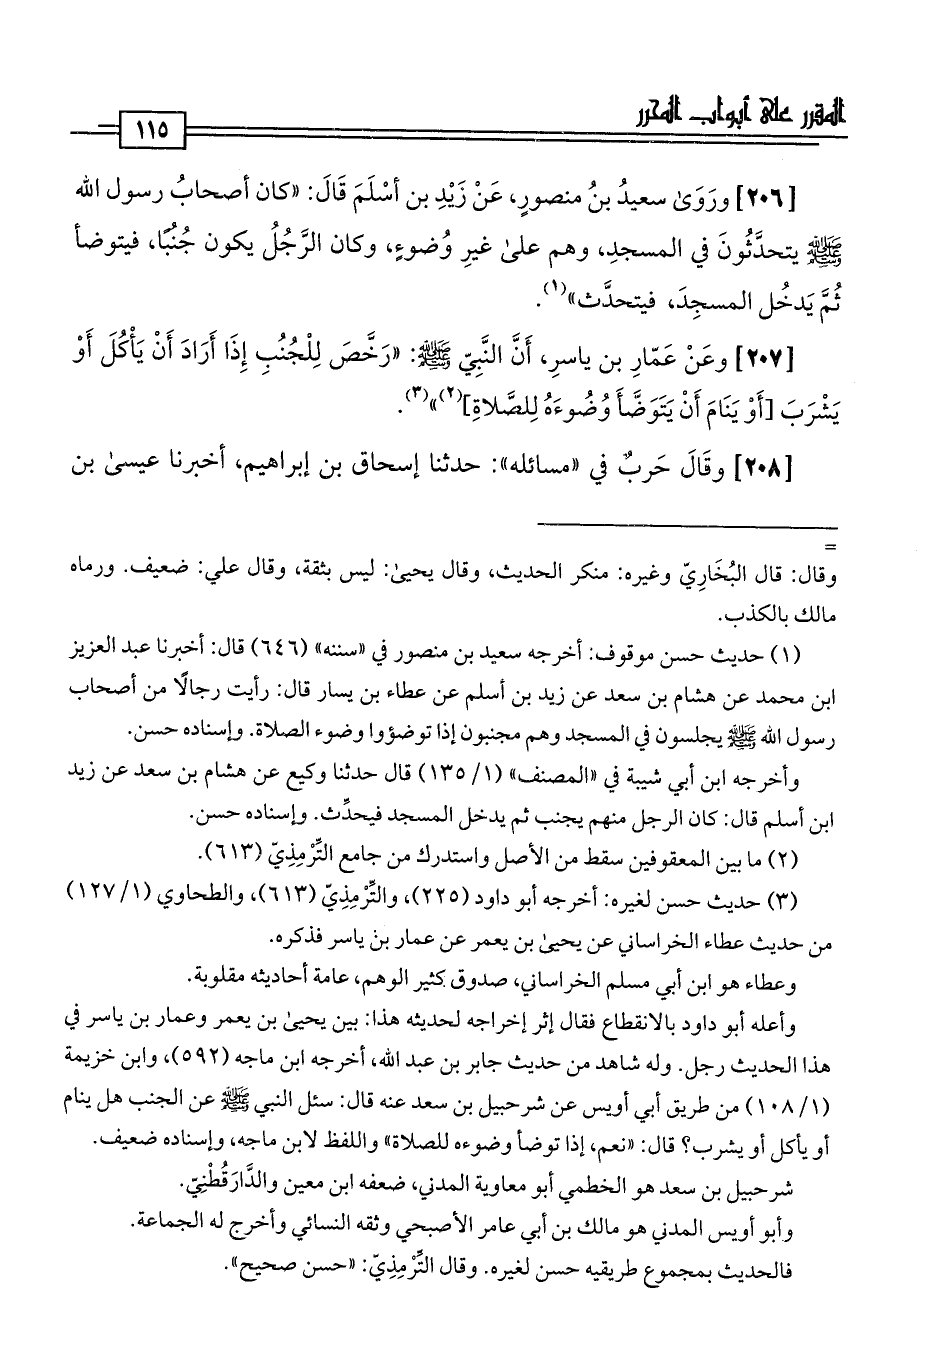 المقرر على أبواب المحرر
١١٥
[٢٠٦] ورَوَىٰ سعيدُ بنُ منصورٍ، عَنْ زَيْدِ بن أسْلَمَ قَالَ: «كان أصحابُ رسول الله
ﷺ يتحدَّثُونَ في المسجدِ، وهم علىٰ غيرِ وُضوءٍ، وكان الرَّجُلُ يكون جُنُبًا، فيتوضأ
ثُمَّ يَدخُل المسجِدَ، فيتحدَّث»(١).
[٢٠٧] وعَنْ عَمَّارِ بن ياسرِ، أَنَّ النَّبِيّ ﷺ: «رَخَّصَ لِلْجُنُبِ إِذَا أَرَادَ أَنْ يَأْكُلَ أَوْ
يَشْرَبَ [أَوْ يَنَامَ أَنْ يَتَوَضَّأَ وُضُوءَهُ لِلصَّلاةِ](٢)»(٣).
[٢٠٨] وقَالَ حَربٌ في «مسائله»: حدثنا إسحاق بن إبراهيم، أخبرنا عيسىٰ بن
=
وقال: قال البُخَاريّ وغيره: منكر الحديث، وقال يحيىٰ: ليس بثقة، وقال علي: ضعيف. ورماه
مالك بالكذب.
(١) حديث حسن موقوف: أخرجه سعيد بن منصور في «سننه» (٦٤٦) قال: أخبرنا عبد العزيز
ابن محمد عن هشام بن سعد عن زيد بن أسلم عن عطاء بن يسار قال: رأيت رجالًا من أصحاب
رسول الله ﷺ يجلسون في المسجد وهم مجنبون إذا توضؤوا وضوء الصلاة. وإسناده حسن.
وأخرجه ابن أبي شيبة في «المصنف» (١/ ١٣٥) قال حدثنا وكيع عن هشام بن سعد عن زيد
ابن أسلم قال: كان الرجل منهم يجنب ثم يدخل المسجد فيحدِّث. وإسناده حسن.
(٢) ما بين المعقوفين سقط من الأصل واستدرك من جامع التِّرْمِذِيّ (٦١٣).
(٣) حديث حسن لغيره: أخرجه أبو داود (٢٢٥)، والتِّرْمِذِيّ (٦١٣)، والطحاوي (١/ ١٢٧)
من حديث عطاء الخراساني عن يحيىٰ بن يعمر عن عمار بن ياسر فذكره.
وعطاء هو ابن أبي مسلم الخراساني، صدوق كثير الوهم، عامة أحاديثه مقلوبة.
وأعله أبو داود بالانقطاع فقال إثر إخراجه لحديثه هذا: بين يحيىٰ بن يعمر وعمار بن ياسر في
هذا الحديث رجل. وله شاهد من حديث جابر بن عبد الله، أخرجه ابن ماجه (٥٩٢)، وابن خزيمة
(١/ ١٠٨) من طريق أبي أويس عن شرحبيل بن سعد عنه قال: سئل النبي ﷺ عن الجنب هل ينام
أو يأكل أو يشرب؟ قال: «نعم، إذا توضأ وضوءه للصلاة» واللفظ لابن ماجه، وإسناده ضعيف.
شرحبيل بن سعد هو الخطمي أبو معاوية المدني، ضعفه ابن معين والدَّارَقُطْنِيّ.
وأبو أويس المدني هو مالك بن أبي عامر الأصبحي وثقه النسائي وأخرج له الجماعة.
فالحديث بمجموع طريقيه حسن لغيره. وقال التِّرْمِذِيّ: «حسن صحيح».